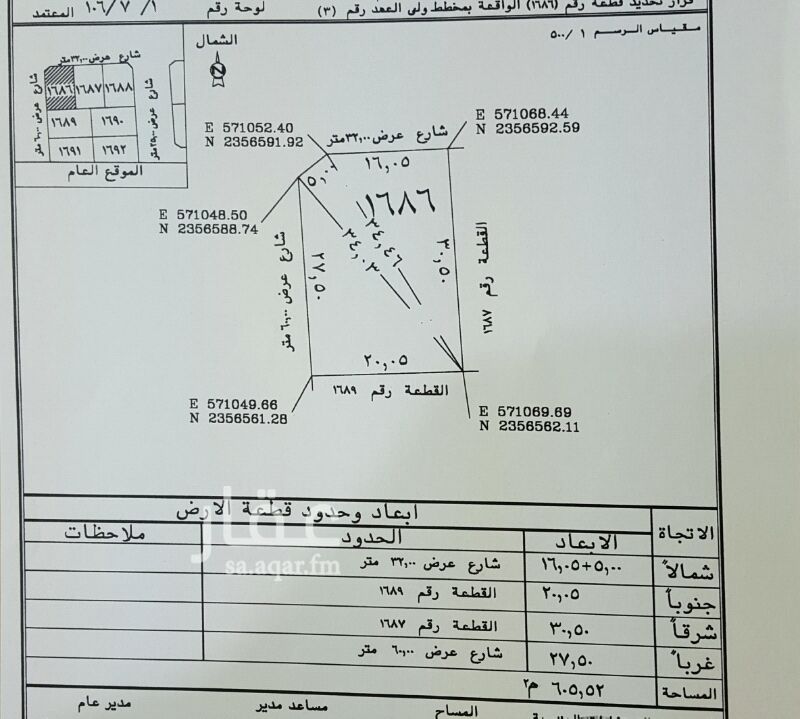 قرار تحديد قطعة رقم (١٦٨٦) الواقعة بمخطط ولى العهد رقم (٣)
لوحة رقم ١ / ٧ / ١٠٦ المعتمد
مقياس الرسم ١ / ٥٠٠
الشمال
N
شارع عرض ٣٢,٠٠ متر
شارع عرض ٦٠,٠٠ متر
١٦٨٦
١٦٨٧
١٦٨٨
١٦٨٩
١٦٩٠
١٦٩١
١٦٩٢
الموقع العام
E 571052.40
N 2356591.92
E 571068.44
N 2356592.59
شارع عرض ٣٢,٠٠ متر
١٦,٠٥
١٦٨٦
E 571048.50
N 2356588.74
شارع عرض ٦٠,٠٠ متر
٢٧,٥٠
٣٤,٠٣
٣٤,٤٦
٣٠,٥٠
القطعة رقم ١٦٨٧
٢٠,٠٥
القطعة رقم ١٦٨٩
E 571049.66
N 2356561.28
E 571069.69
N 2356562.11
ابعاد وحدود قطعة الارض
الاتجاة الابعاد الحدود ملاحظات
شمالاً ١٦,٠٥+٥,٠٠ شارع عرض ٣٢,٠٠ متر
جنوباً ٢٠,٠٥ القطعة رقم ١٦٨٩
شرقاً ٣٠,٥٠ القطعة رقم ١٦٨٧
غرباً ٢٧,٥٠ شارع عرض ٦٠,٠٠ متر
المساحة ٦٠٥,٥٢ م٢
عقار
sa.aqar.fm
المساح مساعد مدير مدير عام